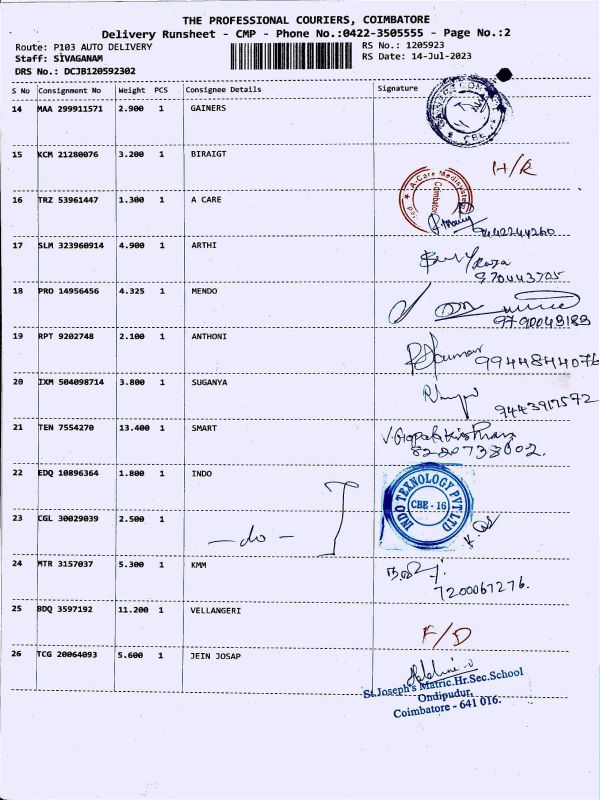 THE PROFESSIONAL COURIERS, COIMBATORE
Delivery Runsheet - CMP - Phone No.:0422-3505555 - Page No.:2
Route: P103 AUTO DELIVERY RS No.: 1205923
Staff: SIVAGANAM RS Date: 14-Jul-2023
DRS No.: DCJB120592302
S No Consignment No Weight PCS Consignee Details Signature
14 MAA 299911571 2.900 1 GAINERS
CBE
15 KCM 21280076 3.200 1 BIRAIGT H/R
16 TRZ 53961447 1.300 1 A CARE
A-Care Medisystems
Coimbatore
9442244260
17 SLM 323960914 4.900 1 ARTHI
970443705
18 PRO 14956456 4.325 1 MENDO
9790049189
19 RPT 9202748 2.100 1 ANTHONI
9944844076
20 IXM 504098714 3.800 1 SUGANYA
9443917572
21 TEN 7554270 13.400 1 SMART
V. Gopalakrishnan
8220733002.
22 EDQ 10896364 1.800 1 INDO
INDO TEXNOLOGY PVT LTD
CBE - 16
23 CGL 30029039 2.500 1 - do -
24 MTR 3157037 5.300 1 KMM
7200067276.
25 BDQ 3597192 11.200 1 VELLANGERI F/D
26 TCG 20064093 5.600 1 JEIN JOSAP
St.Joseph's Matric.Hr.Sec.School
Ondipudur,
Coimbatore - 641 016.